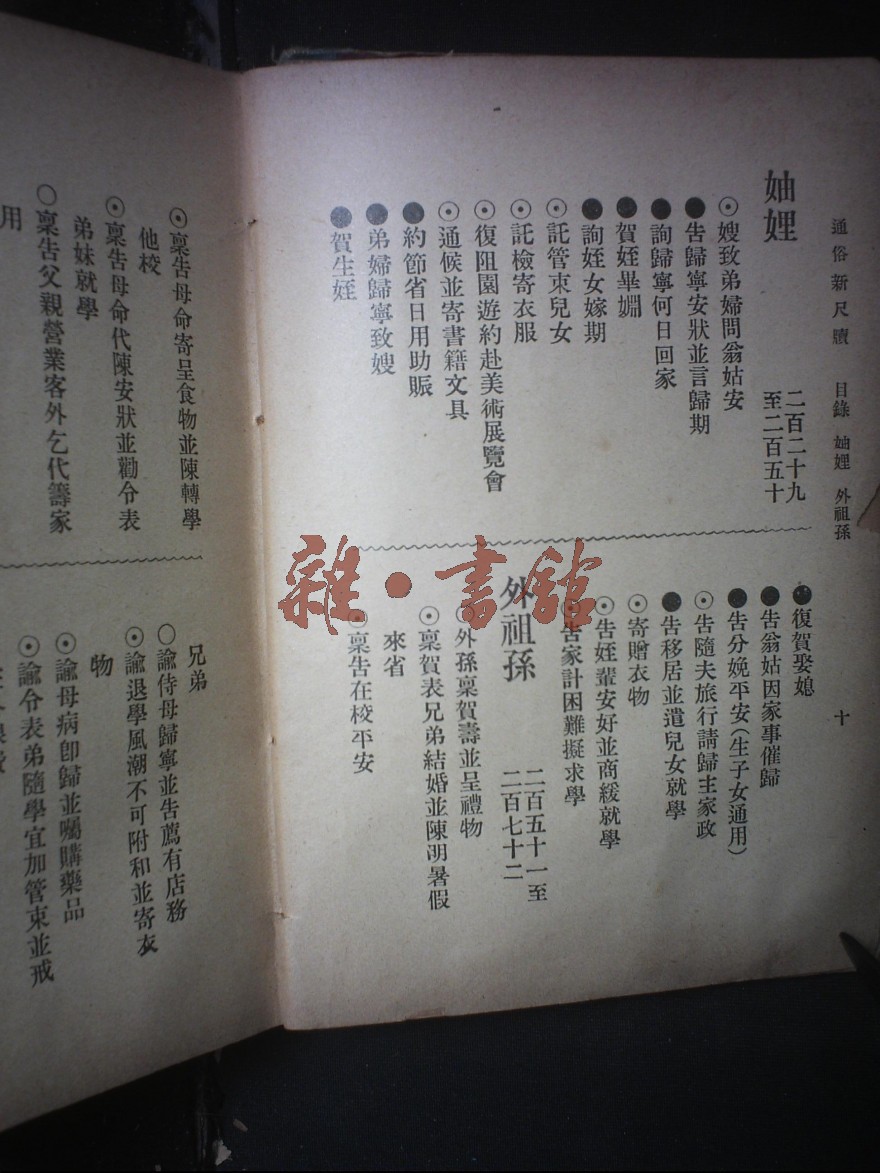 通俗新尺牘 目錄 妯娌 外祖孫 十
妯娌 二百二十九至二百五十
⊙嫂致弟婦問翁姑安
●告歸寧安狀並言歸期
●詢歸寧何日回家
●賀姪畢婣
●詢姪女嫁期
⊙託管束兒女
⊙託檢寄衣服
⊙復阻園遊約赴美術展覽會
⊙通候並寄書籍文具
●約節省日用助賑
●弟婦歸寧致嫂
●賀生姪
●復賀娶媳
●告翁姑因家事催歸
●告分娩平安(生子女通用)
⊙告隨夫旅行請歸主家政
●告移居並遣兒女就學
⊙寄贈衣物
⊙告姪輩安好並商緩就學
⊙告家計困難擬求學
外祖孫 二百五十一至二百七十二
⊙外孫稟賀壽並呈禮物
⊙稟賀表兄弟結婚並陳明暑假
來省
⊙稟告在校平安
⊙稟告母命寄呈食物並陳轉學
他校
⊙稟告母命代陳安狀並勸令表
弟妹就學
○稟告父親營業客外乞代籌家
用
兄弟
○諭侍母歸寧並告薦有店務
⊙諭退學風潮不可附和並寄衣
物
⊙諭母病卽歸並囑購藥品
⊙諭令表弟隨學宜加管束並戒
雜·書館